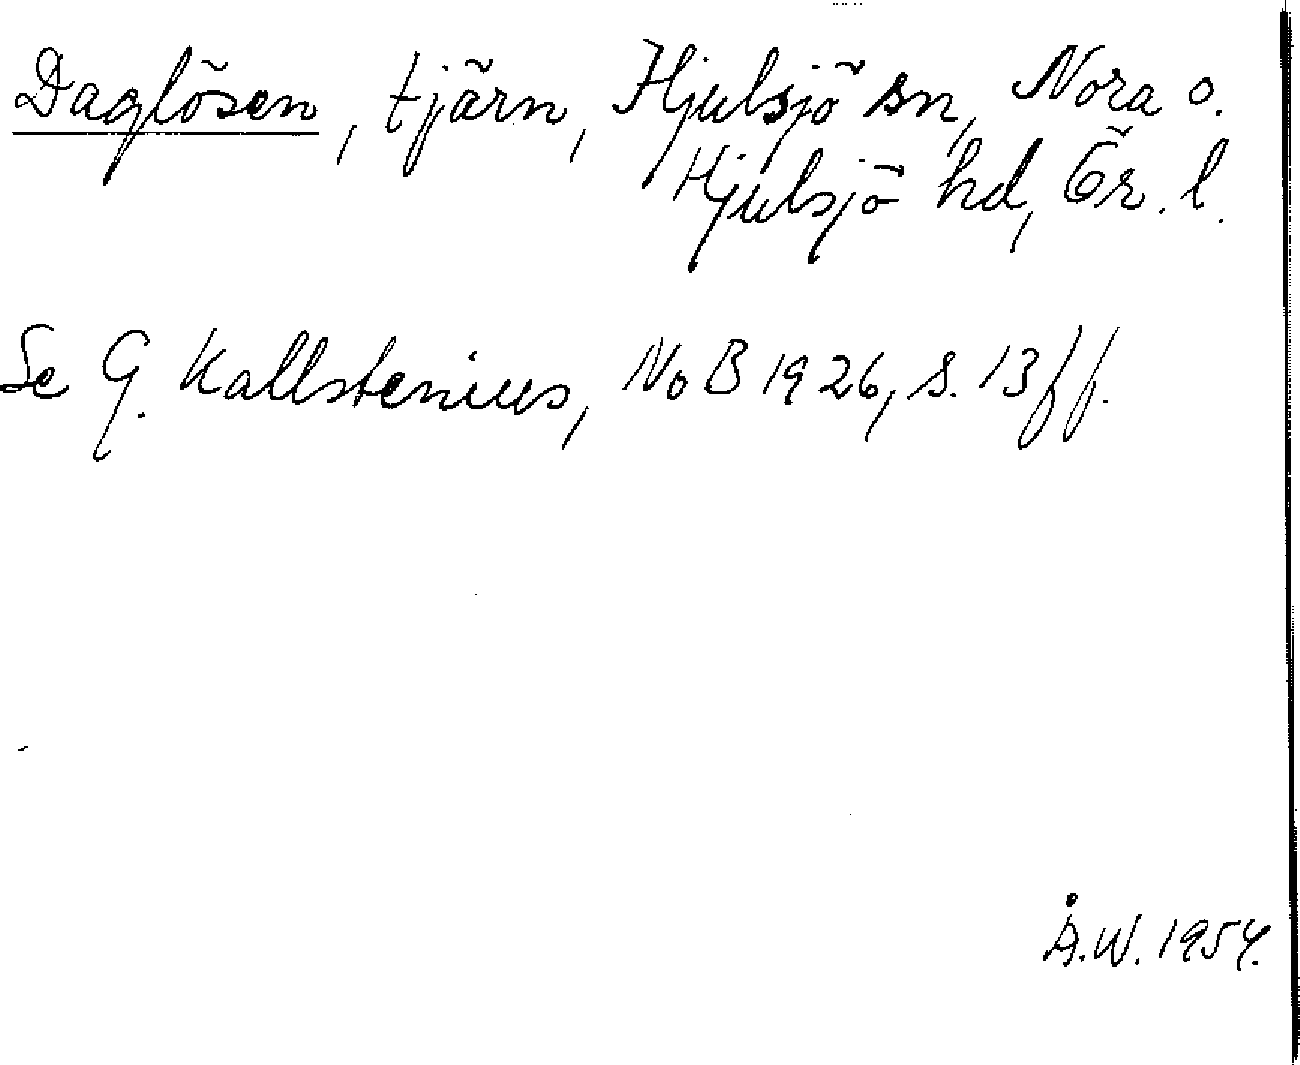 Daglösen, tjärn, Hjulsjö sn, Nora o.
Hjulsjö hd, Ör. l.
Se G. Kallstenius, NoB 1926, s. 13 ff.
Å.W. 1954.